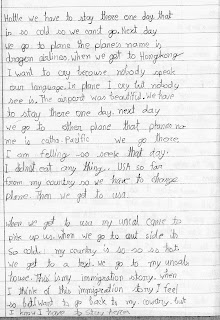 Hottle we have to stay there one day that
in so cold so we can't go. Next day
we go to plane the planes name is
dragon airlines. when we got to Hongkong
I want to cry becouse nobody speak
our language. in plane I cry but nobody
see is. The airport was beautiful. We have
to stay there one day. next day
we go to other plane that planes na
me is catha Pacific we go there
I am felling so seek that day.
I did not eat any thing. USA so far
from my country so we have to change
plane. Then we get to usa.
when we got to usa my uncal came to
pick up us. when we go to out side it
so cold. my country is so so so hot
we get to a taxi. we go to my uncals
house. This is my immigration story. when
I think of this immigration story I feel
so bad. I want to go back to my country. but
I know I have to stay here.